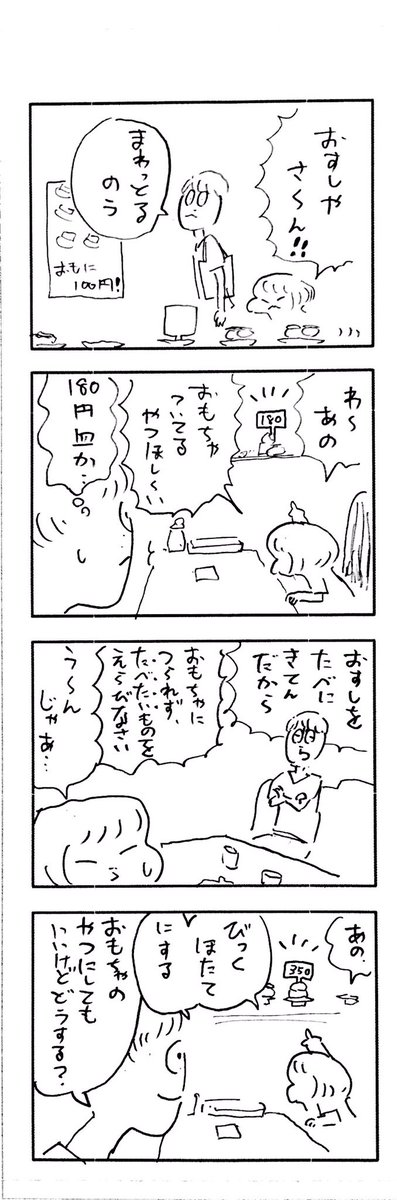 おすしや
さ〜ん!!
まわっとる
のう
おもに
100円!
わ〜
あの
180
おもちゃ
ついてる
やつほし〜
180
円皿か…
おすしを
たべに
きてん
だから
おもちゃに
つられず、
たべたいものを
えらびなさい
う〜ん
じゃあ…
あの、
350
びっく
ほたて
にする
おもちゃの
やつにしても
いいけどどうする?